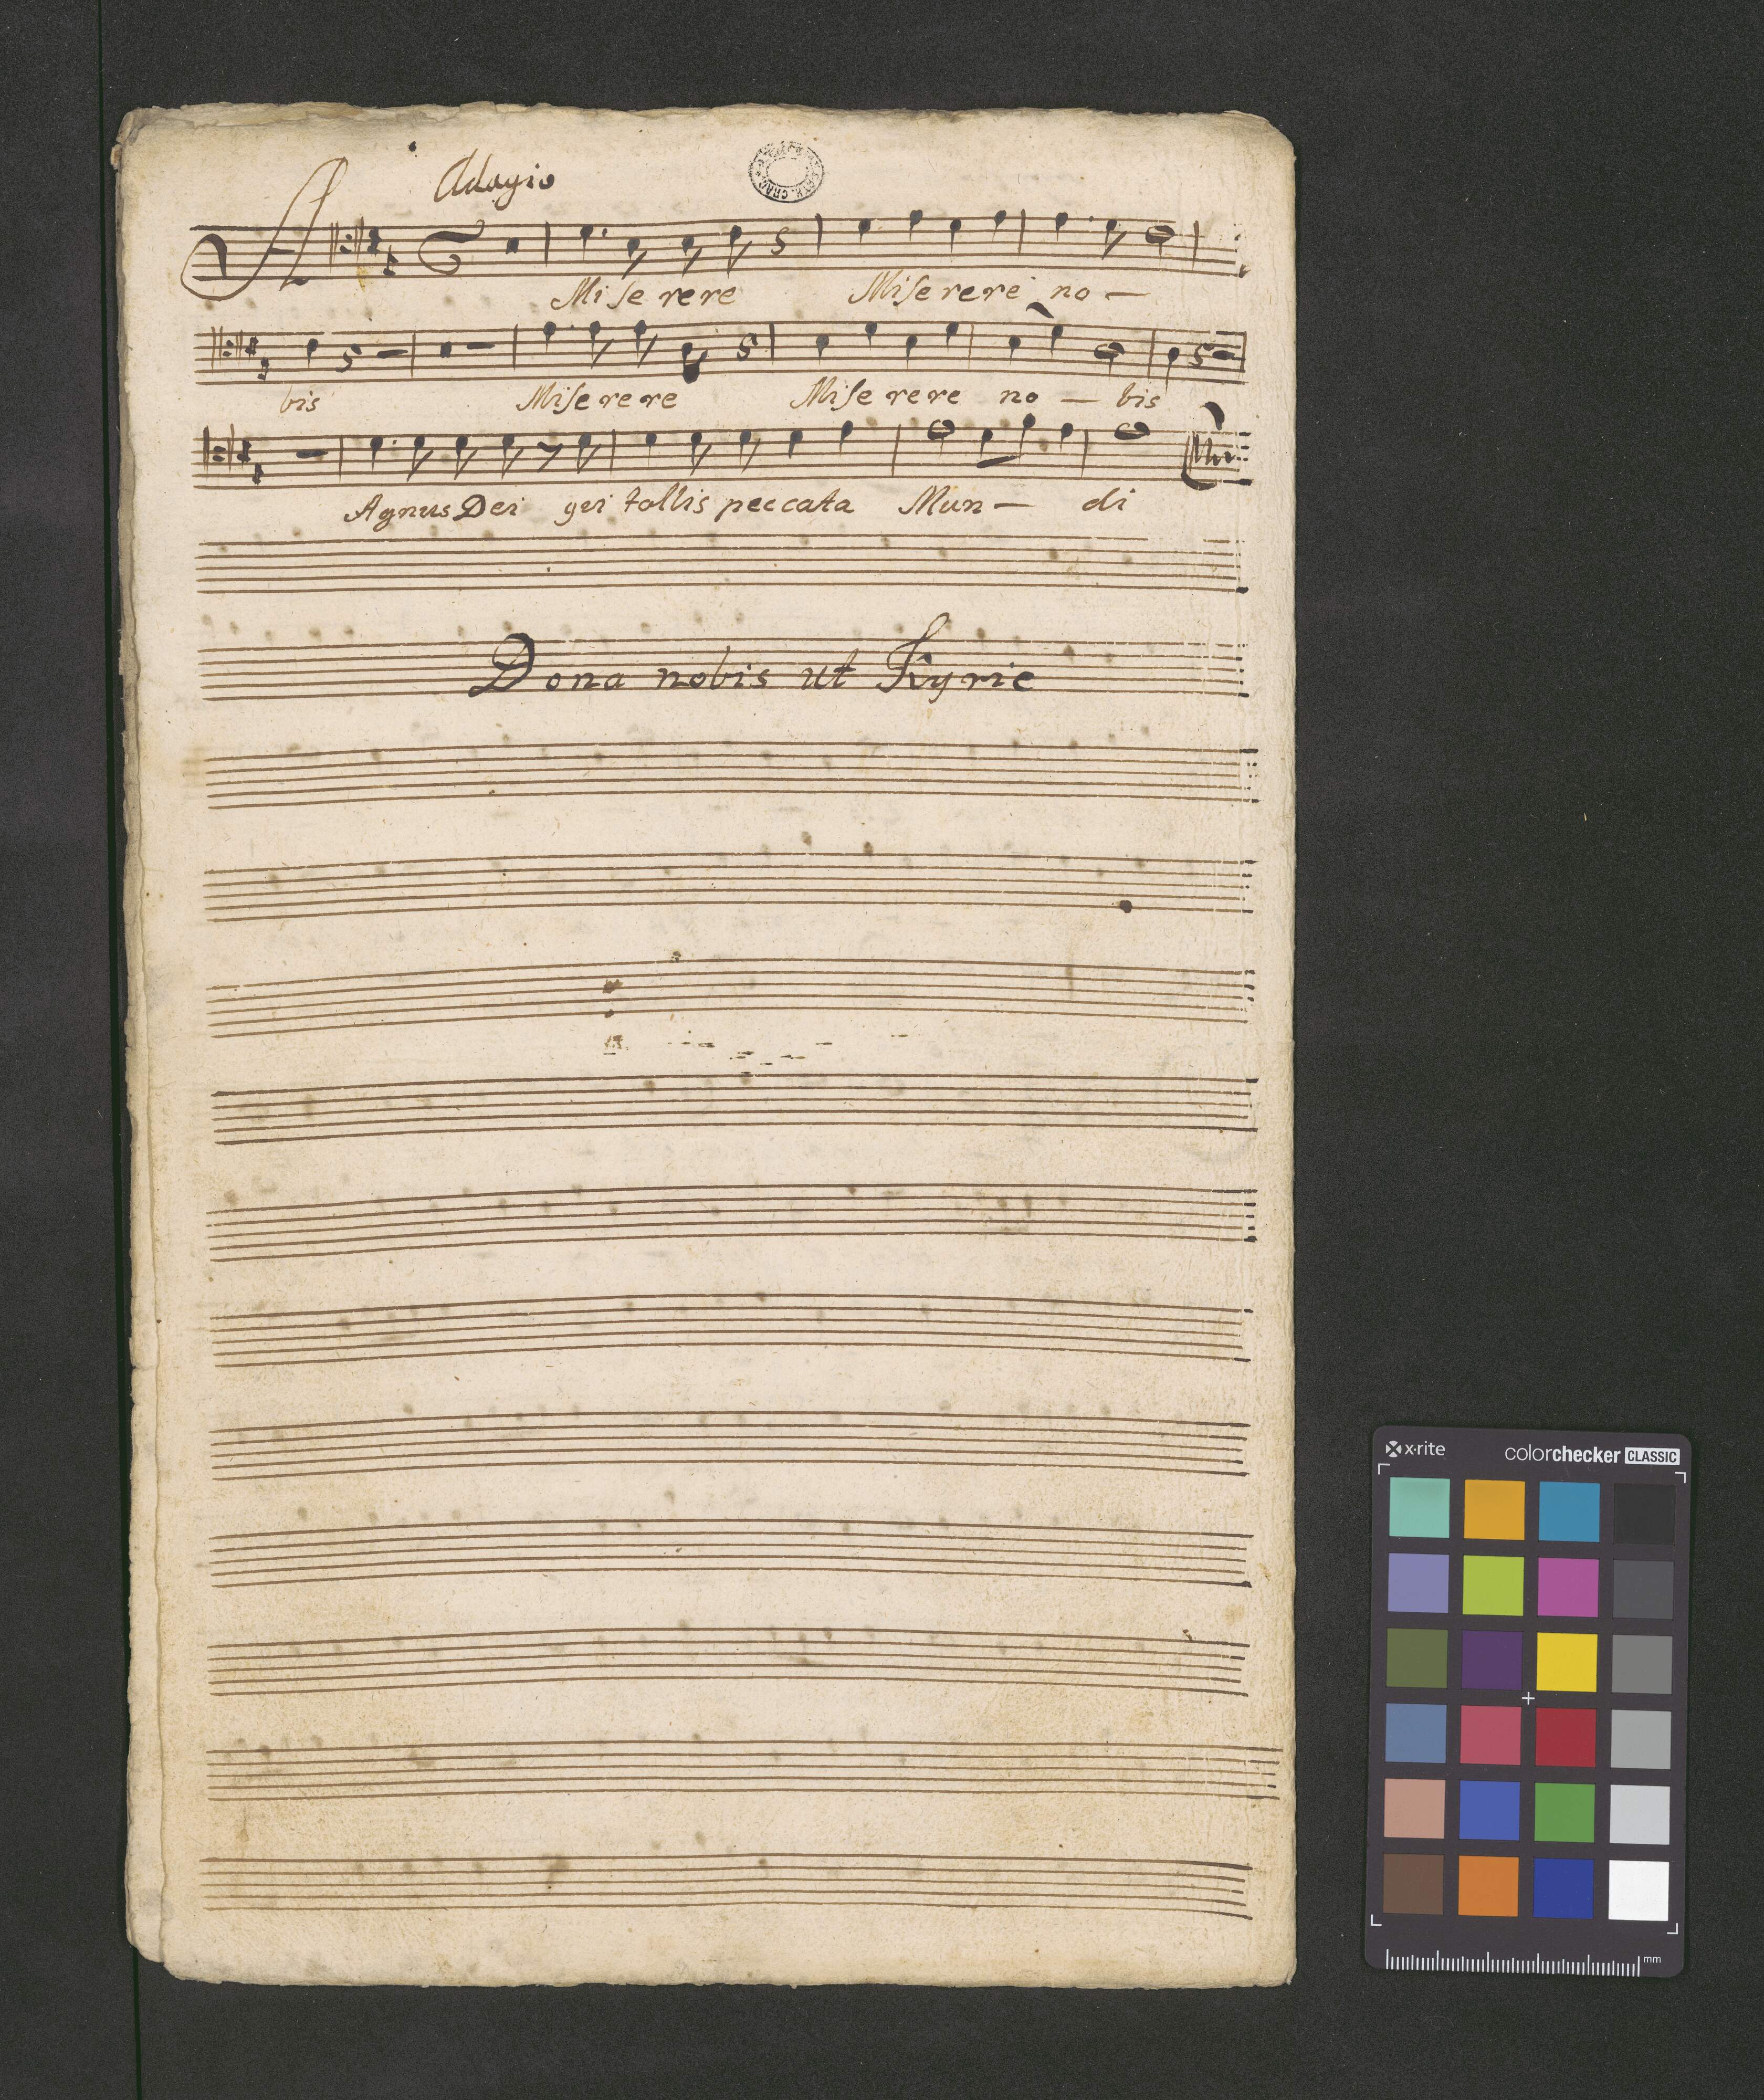 Adagio
A
Miserere Miserere no —
bis Miserere Miserere no — bis
Agnus Dei qui tollis peccata Mun — di
Dona nobis ut Kyrie
x·rite colorchecker CLASSIC
mm